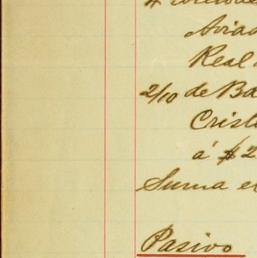 Avia
Real
2/10 de Ba
Crist
á $2
Suma e
Pasivo